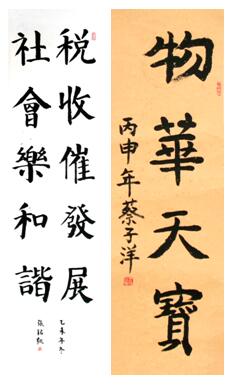 税收催發展
社會樂和諧
乙未年冬
物華天寶
丙申年蔡子洋